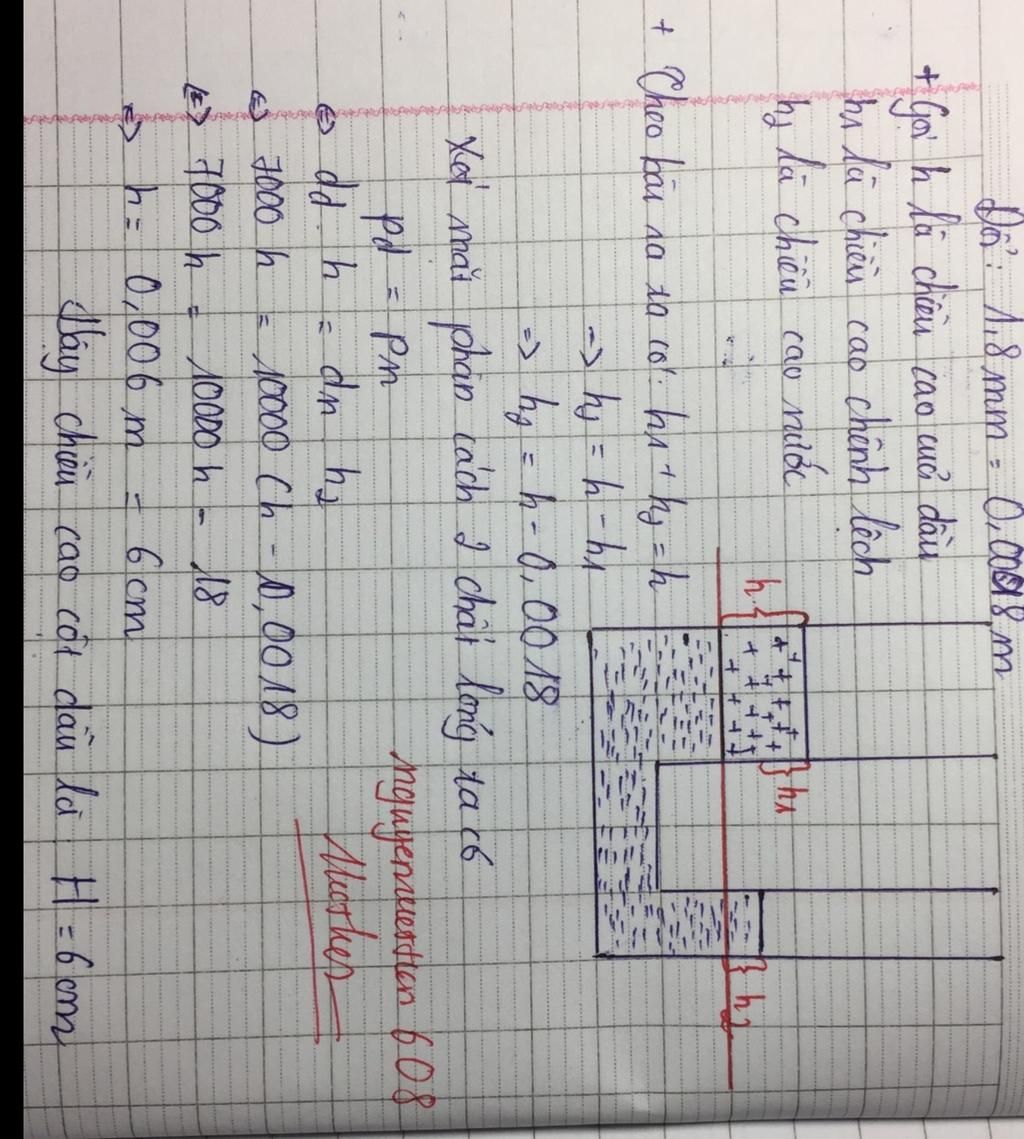 Đổi: 1,8mm = 0,0018m
+ Gọi h là chiều cao cưới dầu
h1 là chiều cao chênh lệch
h2 là chiều cao nước
+ Theo bài ra ta có: h1 + h2 = h
→ h2 = h - h1
⇒ h2 = h - 0,0018
Xét mặt phân cách 2 chất lỏng ta có
pd = pn
⇔ dd. h = dn h2
⇔ 7000 h = 10000 (h - 0,0018)
⇔ 7000 h = 10000 h - 18
⇒ h = 0,006 m = 6 cm
Vậy chiều cao cột dầu là: H = 6 cm
h
h1
h2
608